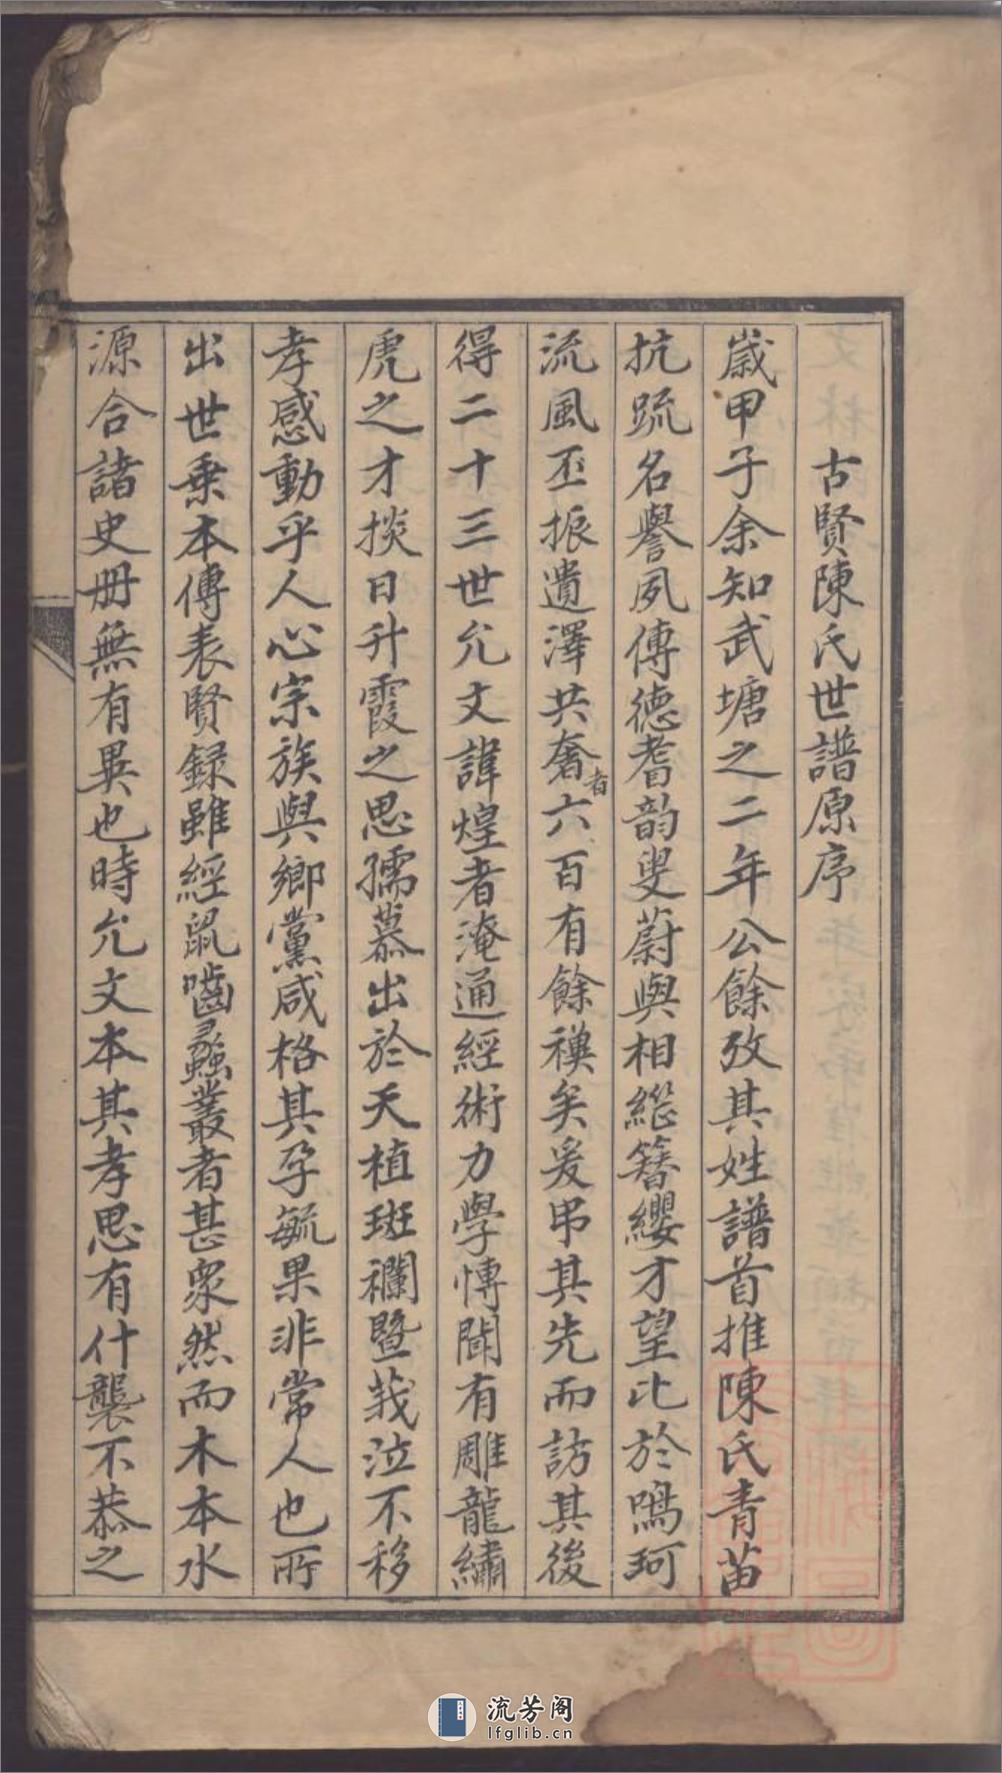 古賢陳氏世譜原序
歲甲子余知武塘之二年公餘攷其姓譜首推陳氏青苗
抗疏名譽夙傳德耆韵叟蔚與相繼簪纓才望比於鳴珂
流風丕振遺澤共奢者六百有餘禩矣爰串其先而訪其後
得二十三世允文諱煌者淹通經術力學博聞有雕龍繡
虎之才掞日升霞之思孺慕出於天植斑襴暨莪泣不移
孝感動乎人心宗族與鄉黨咸格其孕毓果非常人也所
出世乗本傳表賢録雖經鼠嚙蟲叢者甚衆然而木本水
源合諸史册無有異也時允文本其孝思有什襲不恭之
流芳阁
lfglib.cn